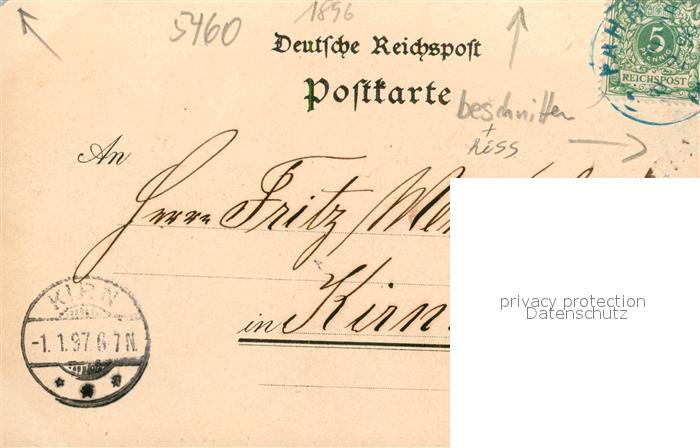 5460
1896
Deutsche Reichspost
Postkarte
5
PFENNIG
REICHSPOST
beschnitten
+
Riss
An
Herrn Fritz
in Kirn.
privacy protection
Datenschutz
KIRN
-1. 1. 97. 6-7 N.